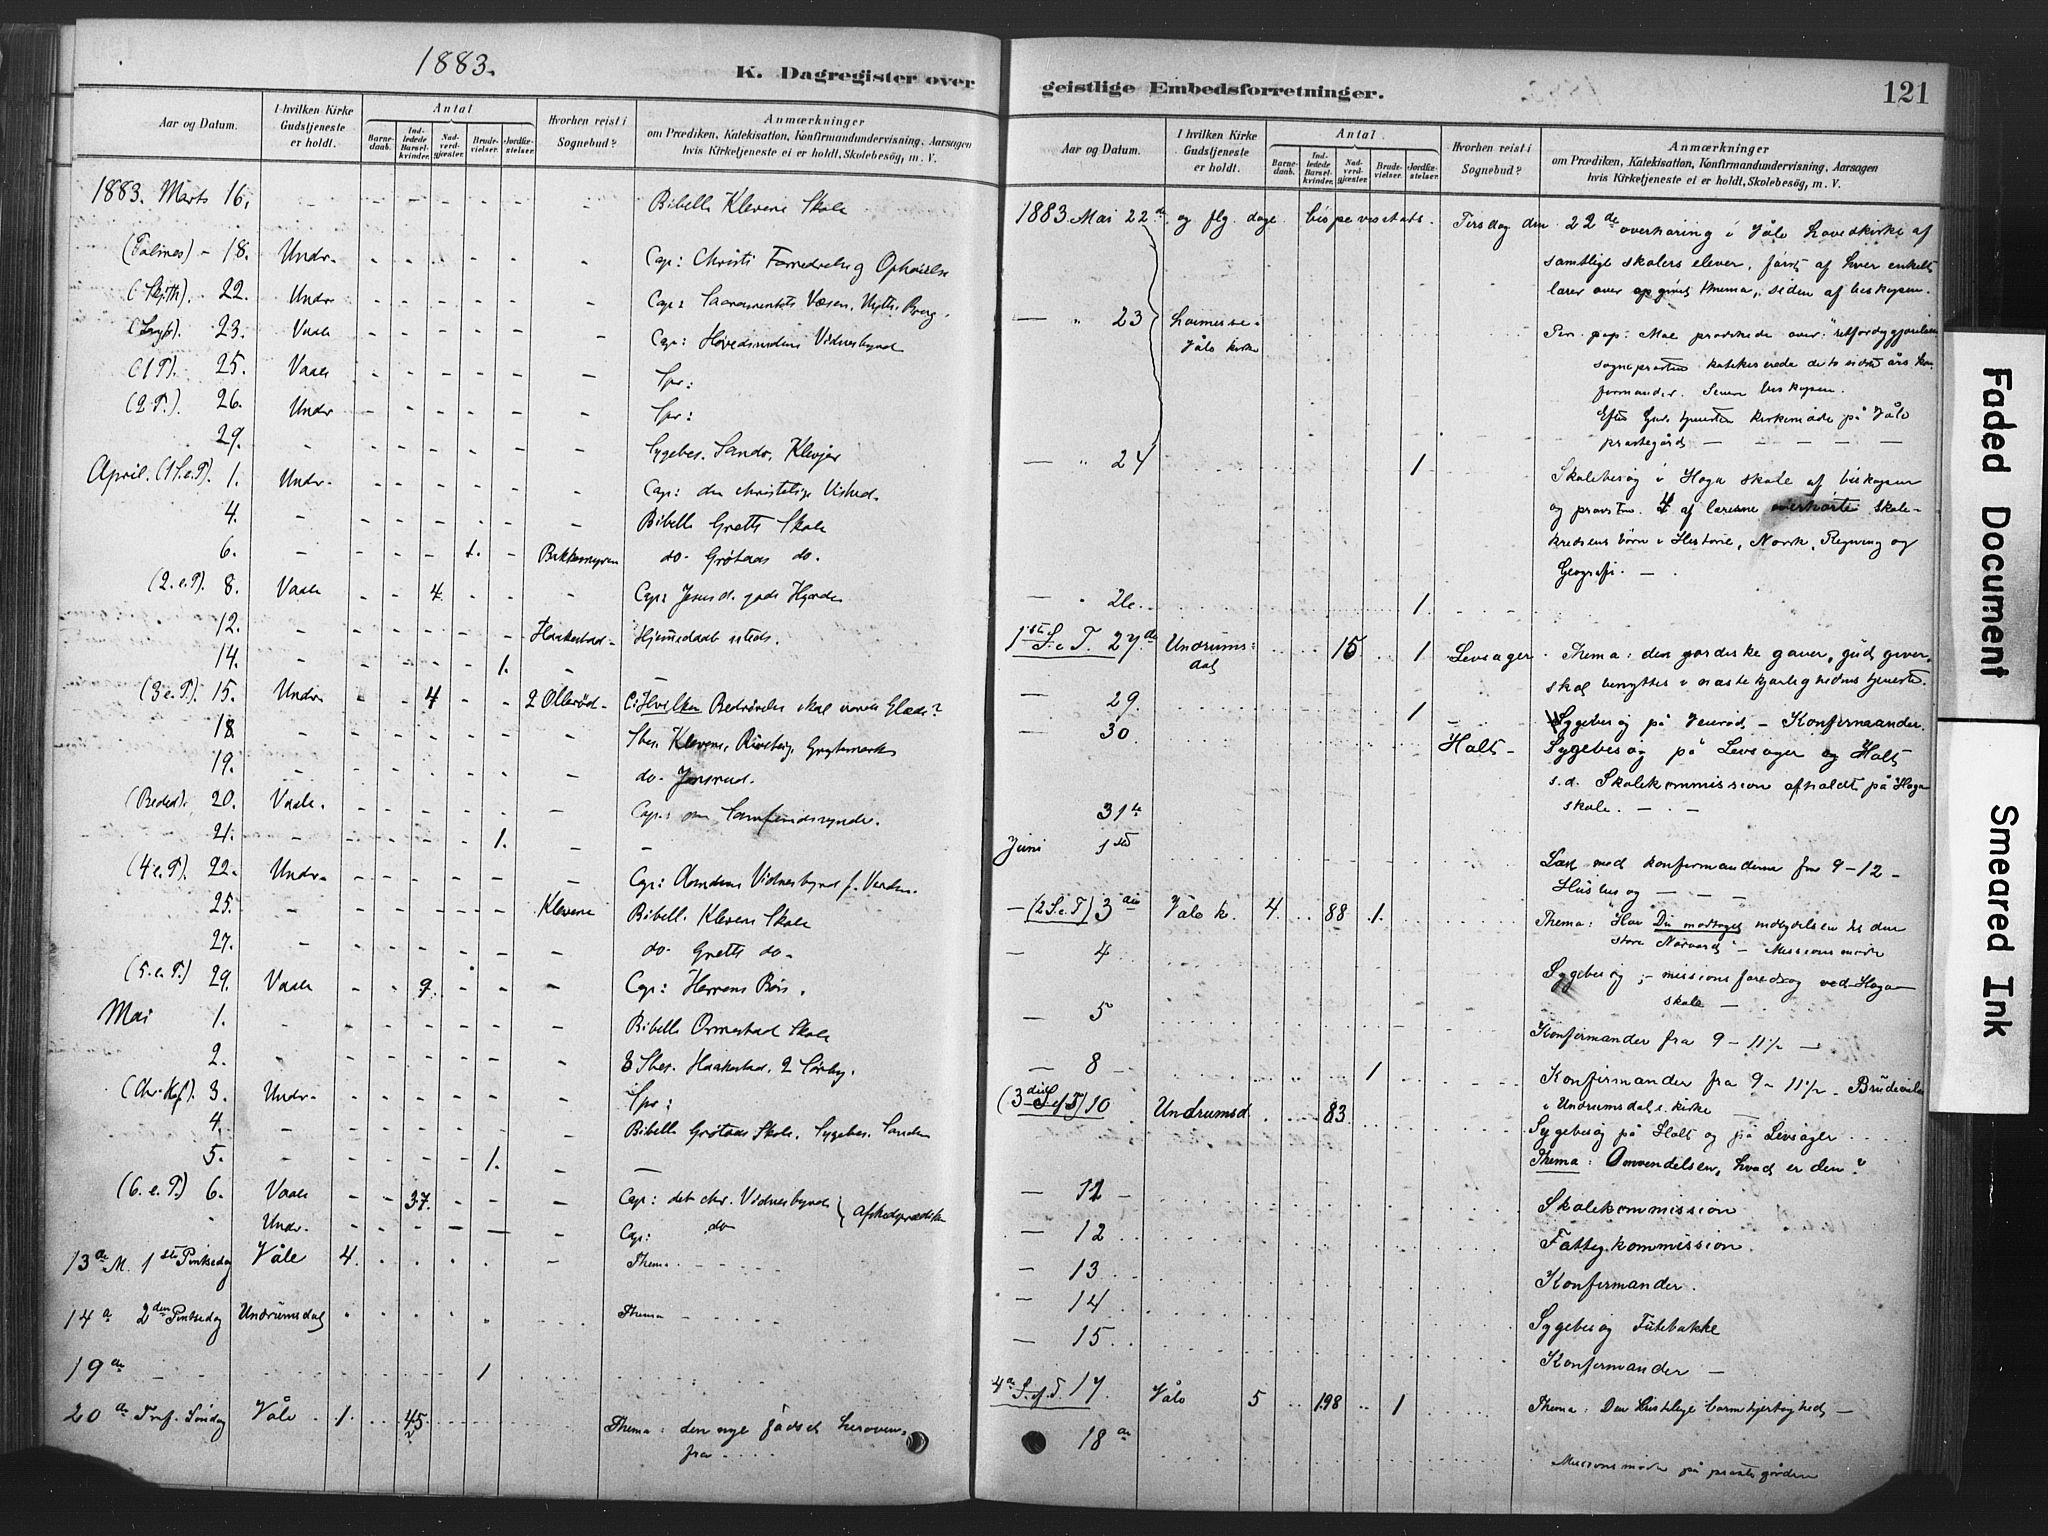 1883.
K. Dagregister over
Aar og Datum.
I hvilken Kirke Gudstjeneste er holdt.
Antal
Barnedaab.
Indledede Barselkvinder.
Nadverdgjæster.
Brudevielser.
Jordfæstelser.
Hvorhen reist i Sognebud?
Anmærkninger
om Prædiken, Katekisation, Konfirmandundervisning, Aarsagen
hvis Kirketjeneste ei er holdt, Skolebesøg, m. V.
1883. Marts 16. - - - - - - - Bibell. Klevene Skole
(Palmes) - 18. Undr. - - - - - - Cap: Christi Fornedrelse og Ophøielse
(Skjth). 22. Undr - - - - - - Cap: Sacramentets Væsen, Nytte, Brug.
(Langfr). 23. Vaale - - - - - - Cap: Hovedsmandens Vidnesbyrd
(1 P). 25. Vaale - - - - - - Spr:
(2 P.). 26. Undr - - - - - - Spr:
29. - - - - - - - Sygebes. Sande, Klevjer
April. (1 S. e. P). 1. Undr. - - - - - - Cap: den christelige Vished.
4. - - - - - - - Bibell. Gretti Skole
6. - - - - 1. - Bakkemyren do. Grøtaas do.
(2. e. P). 8. Vaale - - 4. - - - Cap: Jesus d. gode Hyrde
12. - - - - - - Haakestad - Hjemmedaab steds.
14. - - - - 1. - - -
(3 e. P). 15. Undr - - 4 - - 2 Ollerød - C: Hvilken Bedrøvelse skal vorde Glæde?
18 - - - - - - - Sbes. Klevene, Grytemark
19. - - - - - - - do. Jonsrud.
(Beded). 20. Vaale. - - - - - - Cap: om Samfundssynder.
21. - - - - 1. - - -
(4 e. P) 22. Undr. - - - - - - Cap: Aandens Vidnesbyrd f. Verden.
25. - - - - - - Klevene Bibell. Klevene Skole
27. - - - - - - - do. Gretti do.
(5. e. P.) 29. Vaale - - 9. - - - Cap: Herrens Bøn.
Mai 1. - - - - - - - Bibell. Ormestad Skole
2. - - - - - - - 3 Sbes. Haakestad, 2 Sørby.
(Chr. Hf). 3. Undr. - - - - - - Spr:
4. - - - - - - - Bibell. Grøtaas Skole. Sygebes. Sanden
5. - - - - 1. - - -
(6. e. P.) 6. Vaale - - 37. - - - Cap: det chr. Vidnesbyrd } Afskedsprædiken
" Undr. - - - - - Cap: do
13de M. 1ste Pintsedag Våle 4. . . . - - Thema - - - - -
14de 2den Pintsedag Undrumsdal . . . . . . Thema - - - - -
19de - - 1
20de Tref. Søndag Våle. 1. 45. Thema: den nye fødsel herovenfra ....
geistlige Embedsforretninger.
121
Aar og Datum.
I hvilken Kirke Gudstjeneste er holdt.
Antal
Barnedaab.
Indledede Barselkvinder.
Nadverdgjæster.
Brudevielser.
Jordfæstelser.
Hvorhen reist i Sognebud?
Anmærkninger
om Prædiken, Katekisation, Konfirmandundervisning, Aarsagen
hvis Kirketjeneste ei er holdt, Skolebesøg, m. V.
1883 Mai 22de og flg. dage bispevisitats. Tirsdag den 22de overhøring i Våle hovedkirke af
samtlige skolers elever, først af hver enkelt
lærer over opgivet thema, siden af biskopen.
- " 23 hovmesse i Våle kirke Per. pap: Moe prædikede over "retfærdiggjørelsen
sognepræsten katekiserede de to sidste års konfirmander. Senere biskopen.
Efter Gudstjenesten kirkemøde på Våle
præstegård - - - - -
- " 24 1 Skolebesøg i Haga skole af biskopen
og provsten. 4 af lærerne overhørte skole-
kredsens børn i Historie, Norsk, Regning og
Geografi. -
- " 26. 1
1ste S. e. T. 27de Undrumsdal 15 1 Levsager. Thema: den jordiske gaver, gud giver,
skal benyttes i næstekjærlighedens tjeneste.
- 29. 1 Sygebesøg på Jeurød - Konfirmander.
- 30 Holt - Sygebesøg på Levsager og Holt
s. d. Skolekommission afholdt på Haga
31te skole. - - -
Juni 1ste Læst med konfirmanderne fra 9-12 -
Husbesøg - -
- (2 S. e. T) 3die Våle k. 4. 88 1. Thema: "Har Du modtaget indbydelsen til den
store Nadverd" - Missionsmøde
- 4 Sygebesøg; - missionsforedrag ved Haga
skole -
- 5 Konfirmander fra 9 - 11½ -
- 8 1 Konfirmander fra 9 - 11½ - Brudevielse
i Undrumsdals kirke
(3die S. e. T) 10 Undrumsd. 83. Sygebesøg på Holt og på Levsager
Thema: Omvendelsen, hvad er den?
- 12 - Skolekommission
- 12 Fattigkommission.
- 13 Konfirmander.
- 14
- 15 Sygebesøg Futebakke
Konfirmander -
4de S. e. T. 17. Våle 5 198 1 Thema: Den kristelige barmhjertighed -
18de
Missionsmøde på præstegården
Faded Document
Smeared Ink